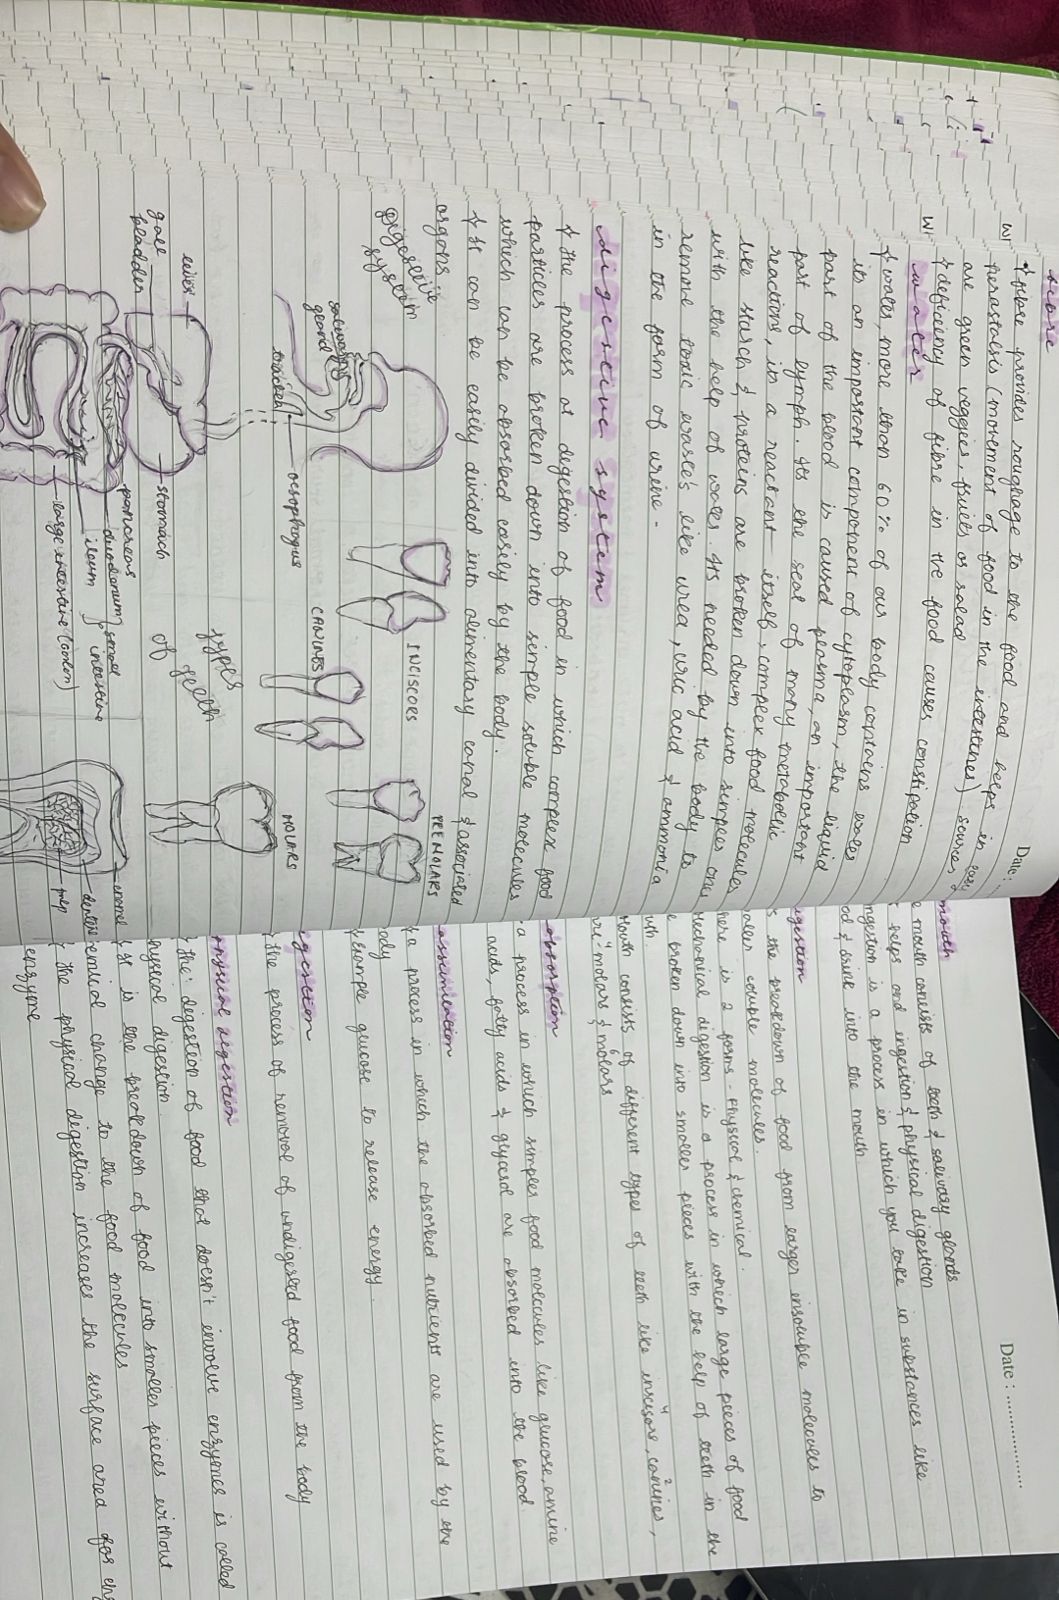 fibre
fibre provides roughage to the food and helps in easy
perastalsis (movement of food in the intestines) sources
are green veggies, fruits as salad
deficiency of fibre in the food causes constipation
water
water, more than 60% of our body contains water
its an important component of cytoplasm, the liquid
part of the blood is caused plasma, an important
part of lymph. Its the seat of many metabolic
reactions, in a reactant itself, complex food molecules
like starch & proteins are broken down into simpler one
with the help of water. Its needed by the body to
remove toxic waste's like urea, uric acid & ammonia
in the form of urine -
digestive system
the process of digestion of food in which complex food
particles are broken down into simple soluble molecules
which can be absorbed easily by the body.
It can be easily divided into alimentary canal & associated
organs
digestive
system
salivary
gland
trachea
oesophagus
liver
gall
bladder
stomach
pancreas
duodenum
ileum
small
intestine
large intestine (colon)
INCISORS
CANINES
PREMOLARS
MOLARS
types
of teeth
enamel
dentine
pulp
Date :
Date : ................
mouth
mouth consists of teeth & salivary glands
helps and ingestion & physical digestion
ingestion is a process in which you take in substances like
food & drink into the mouth
digestion
the breakdown of food from larger insoluble molecules to
soluble molecules.
there is 2 forms - Physical & chemical.
mechanical digestion is a process in which large pieces of food
broken down into smaller pieces with the help of teeth in the
mouth
Mouth consists of different types of teeth like incisors, canines,
4 2
pre-molars & molars
6
absorption
a process in which simpler food molecules like glucose, amino
acids, fatty acids & glycerol are absorbed into the blood.
assimilation
a process in which the absorbed nutrients are used by the
body
Example glucose to release energy.
egestion
the process of removal of undigested food from the body
physical digestion
the digestion of food that doesn't involve enzymes is called
physical digestion
It is the breakdown of food into smaller pieces without
chemical change to the food molecules
the physical digestion increases the surface area for
enzyme